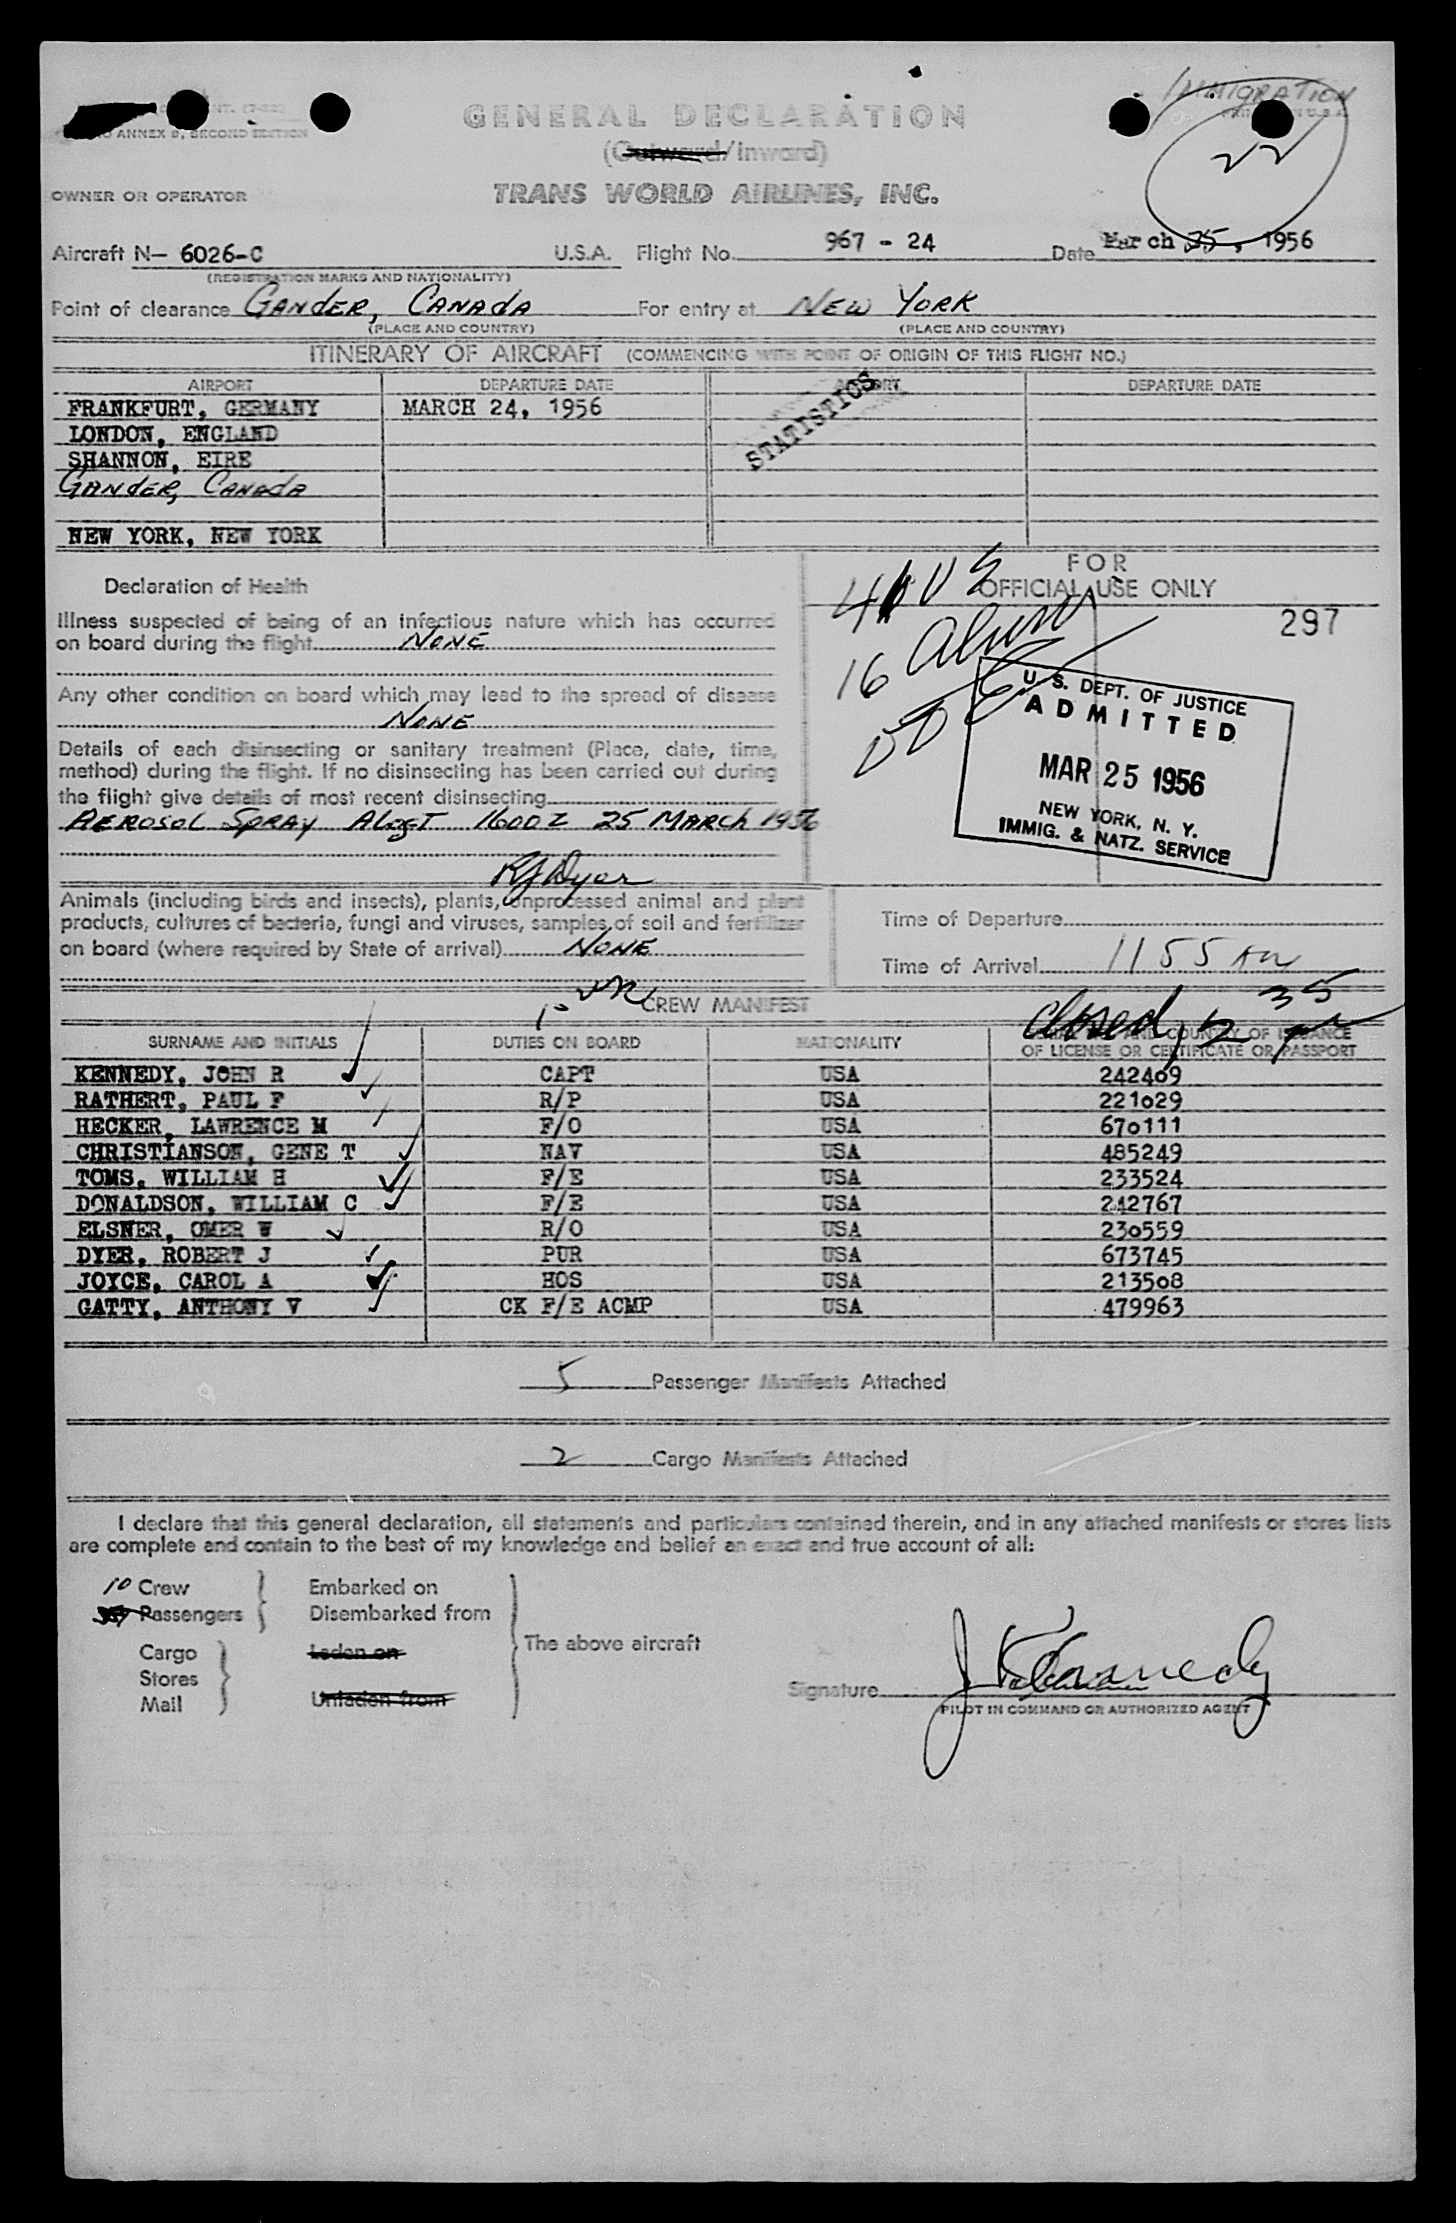 IMMIGRATION
ANNEX 9, SECOND EDITION
GENERAL DECLARATION
(Outward/Inward)
22
OWNER OR OPERATOR TRANS WORLD AIRLINES, INC.
Aircraft N- 6026-C U.S.A. Flight No. 967 - 24 Date March 25, 1956
(REGISTRATION MARKS AND NATIONALITY)
Point of clearance GANDER, CANADA For entry at NEW YORK
(PLACE AND COUNTRY) (PLACE AND COUNTRY)
ITINERARY OF AIRCRAFT (COMMENCING WITH POINT OF ORIGIN OF THIS FLIGHT NO.)
AIRPORT DEPARTURE DATE AIRPORT DEPARTURE DATE
FRANKFURT, GERMANY MARCH 24, 1956
STATISTICS
LONDON, ENGLAND
SHANNON, EIRE
GANDER, CANADA
NEW YORK, NEW YORK
FOR
OFFICIAL USE ONLY
297
41 US
16 Alien
U. S. DEPT. OF JUSTICE
ADMITTED
MAR 25 1956
NEW YORK, N. Y.
IMMIG. & NATZ. SERVICE
Declaration of Health
Illness suspected of being of an infectious nature which has occurred
on board during the flight NONE
Any other condition on board which may lead to the spread of disease
NONE
Details of each disinsecting or sanitary treatment (Place, date, time,
method) during the flight. If no disinsecting has been carried out during
the flight give details of most recent disinsecting
AEROSOL SPRAY 1600Z 25 MARCH 1956
RJ Dyer
Animals (including birds and insects), plants, unprocessed animal and plant
products, cultures of bacteria, fungi and viruses, samples of soil and fertilizer
on board (where required by State of arrival) NONE
Time of Departure
Time of Arrival 1155 AM
Closed 12 35
CREW MANIFEST
SURNAME AND INITIALS DUTIES ON BOARD NATIONALITY AND COUNTRY OF ISSUANCE
OF LICENSE OR CERTIFICATE OR PASSPORT
KENNEDY, JOHN R CAPT USA 242409
RATHERT, PAUL F R/P USA 221029
HECKER, LAWRENCE M F/O USA 670111
CHRISTIANSON, GENE T NAV USA 485249
TOMS, WILLIAM H F/E USA 233524
DONALDSON, WILLIAM C F/E USA 242767
ELSNER, OMER W R/O USA 230559
DYER, ROBERT J PUR USA 673745
JOYCE, CAROL A HOS USA 213508
GATTY, ANTHONY V CK F/E ACMP USA 479963
5 Passenger Manifests Attached
2 Cargo Manifests Attached
I declare that this general declaration, all statements and particulars contained therein, and in any attached manifests or stores lists
are complete and contain to the best of my knowledge and belief an exact and true account of all:
10 Crew Embarked on
Passengers Disembarked from
The above aircraft
Cargo Laden on
Stores
Mail Unladen from
Signature J R Kennedy
PILOT IN COMMAND OR AUTHORIZED AGENT